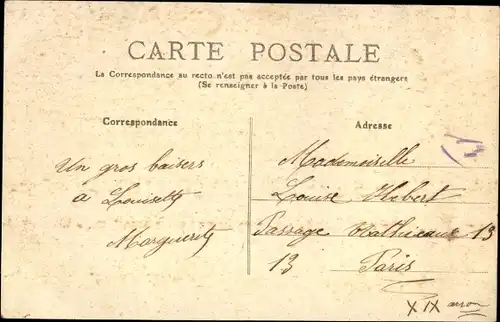 CARTE POSTALE
La Correspondance au recto n'est pas acceptée par tous les pays étrangers
(Se renseigner à la Poste)
Correspondance
Un gros baisers
a Louisette
Marguerite
Adresse
Mademoiselle
Louise Hubert
Passage 13
13 Paris
XIX